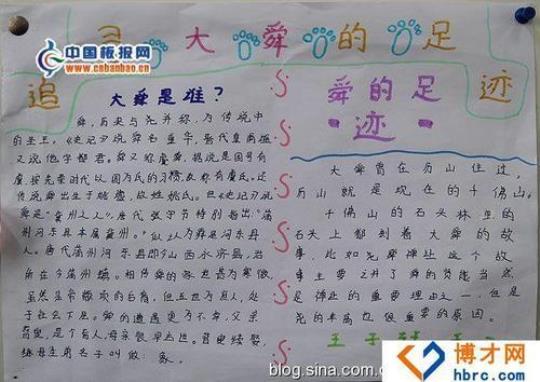 追寻大舜的足迹
中国板报网
www.cnbanbao.cn
大舜是谁？
舜，历来与尧并称，为传说中
的圣王。《史记》说舜名重华，晋代皇甫谧
又说他字都君。舜又称虞舜，据说是国号有
虞，按先秦时代以国为氏的习惯，故称有虞氏。还
传说舜出生于姚墟，故姓姚氏。但《史记》又说
舜是"冀州之人"。唐代张守节特别指出："蒲
州河东县本属冀州。"
唐代蒲州河东县即今山西永济县，治
所在今蒲州镇。相传舜的家世甚为寒微，
虽然是帝颛顼的后裔，但五世为庶人，处
于社会下层。舜的遭遇更为不幸，父亲
瞽叟，是个盲人，母亲很早去世。瞽叟续娶，
继母生弟名子叫做：象。
舜的足
迹
大舜曾在历山住过，
历山就是现在的千佛山。
千佛山的石头林里的
石头上都刻着大舜的故
事，比如尧舜禅让这个故
事主要又讲了舜的贤能当然
是禅让的重要理由之一，但是
尧的丰富也很重要的原因。
王子
博才网
hbrc.com
blog.sina.com.c